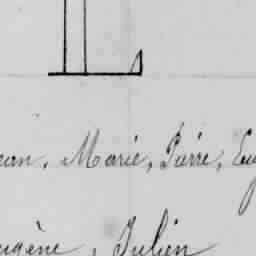 L
ean, Marie, Pierre, Eu
ugène, Julien